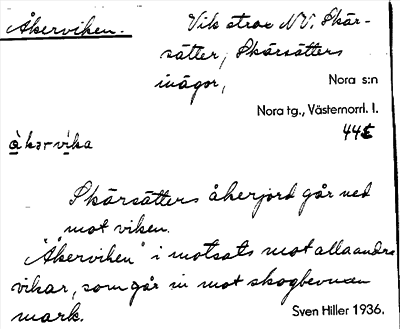 Åkerviken.
Vik strax NV, Skär-
sätter, Skärsätters
inägor,
Nora s:n
Nora tg., Västernorrl. l.
44E
àkərvika
Skärsätters åkerjord går ned
mot viken.
"Åkerviken" i motsats mot alla andra
vikar, som går in mot skogbevuxen
mark.
Sven Hiller 1936.